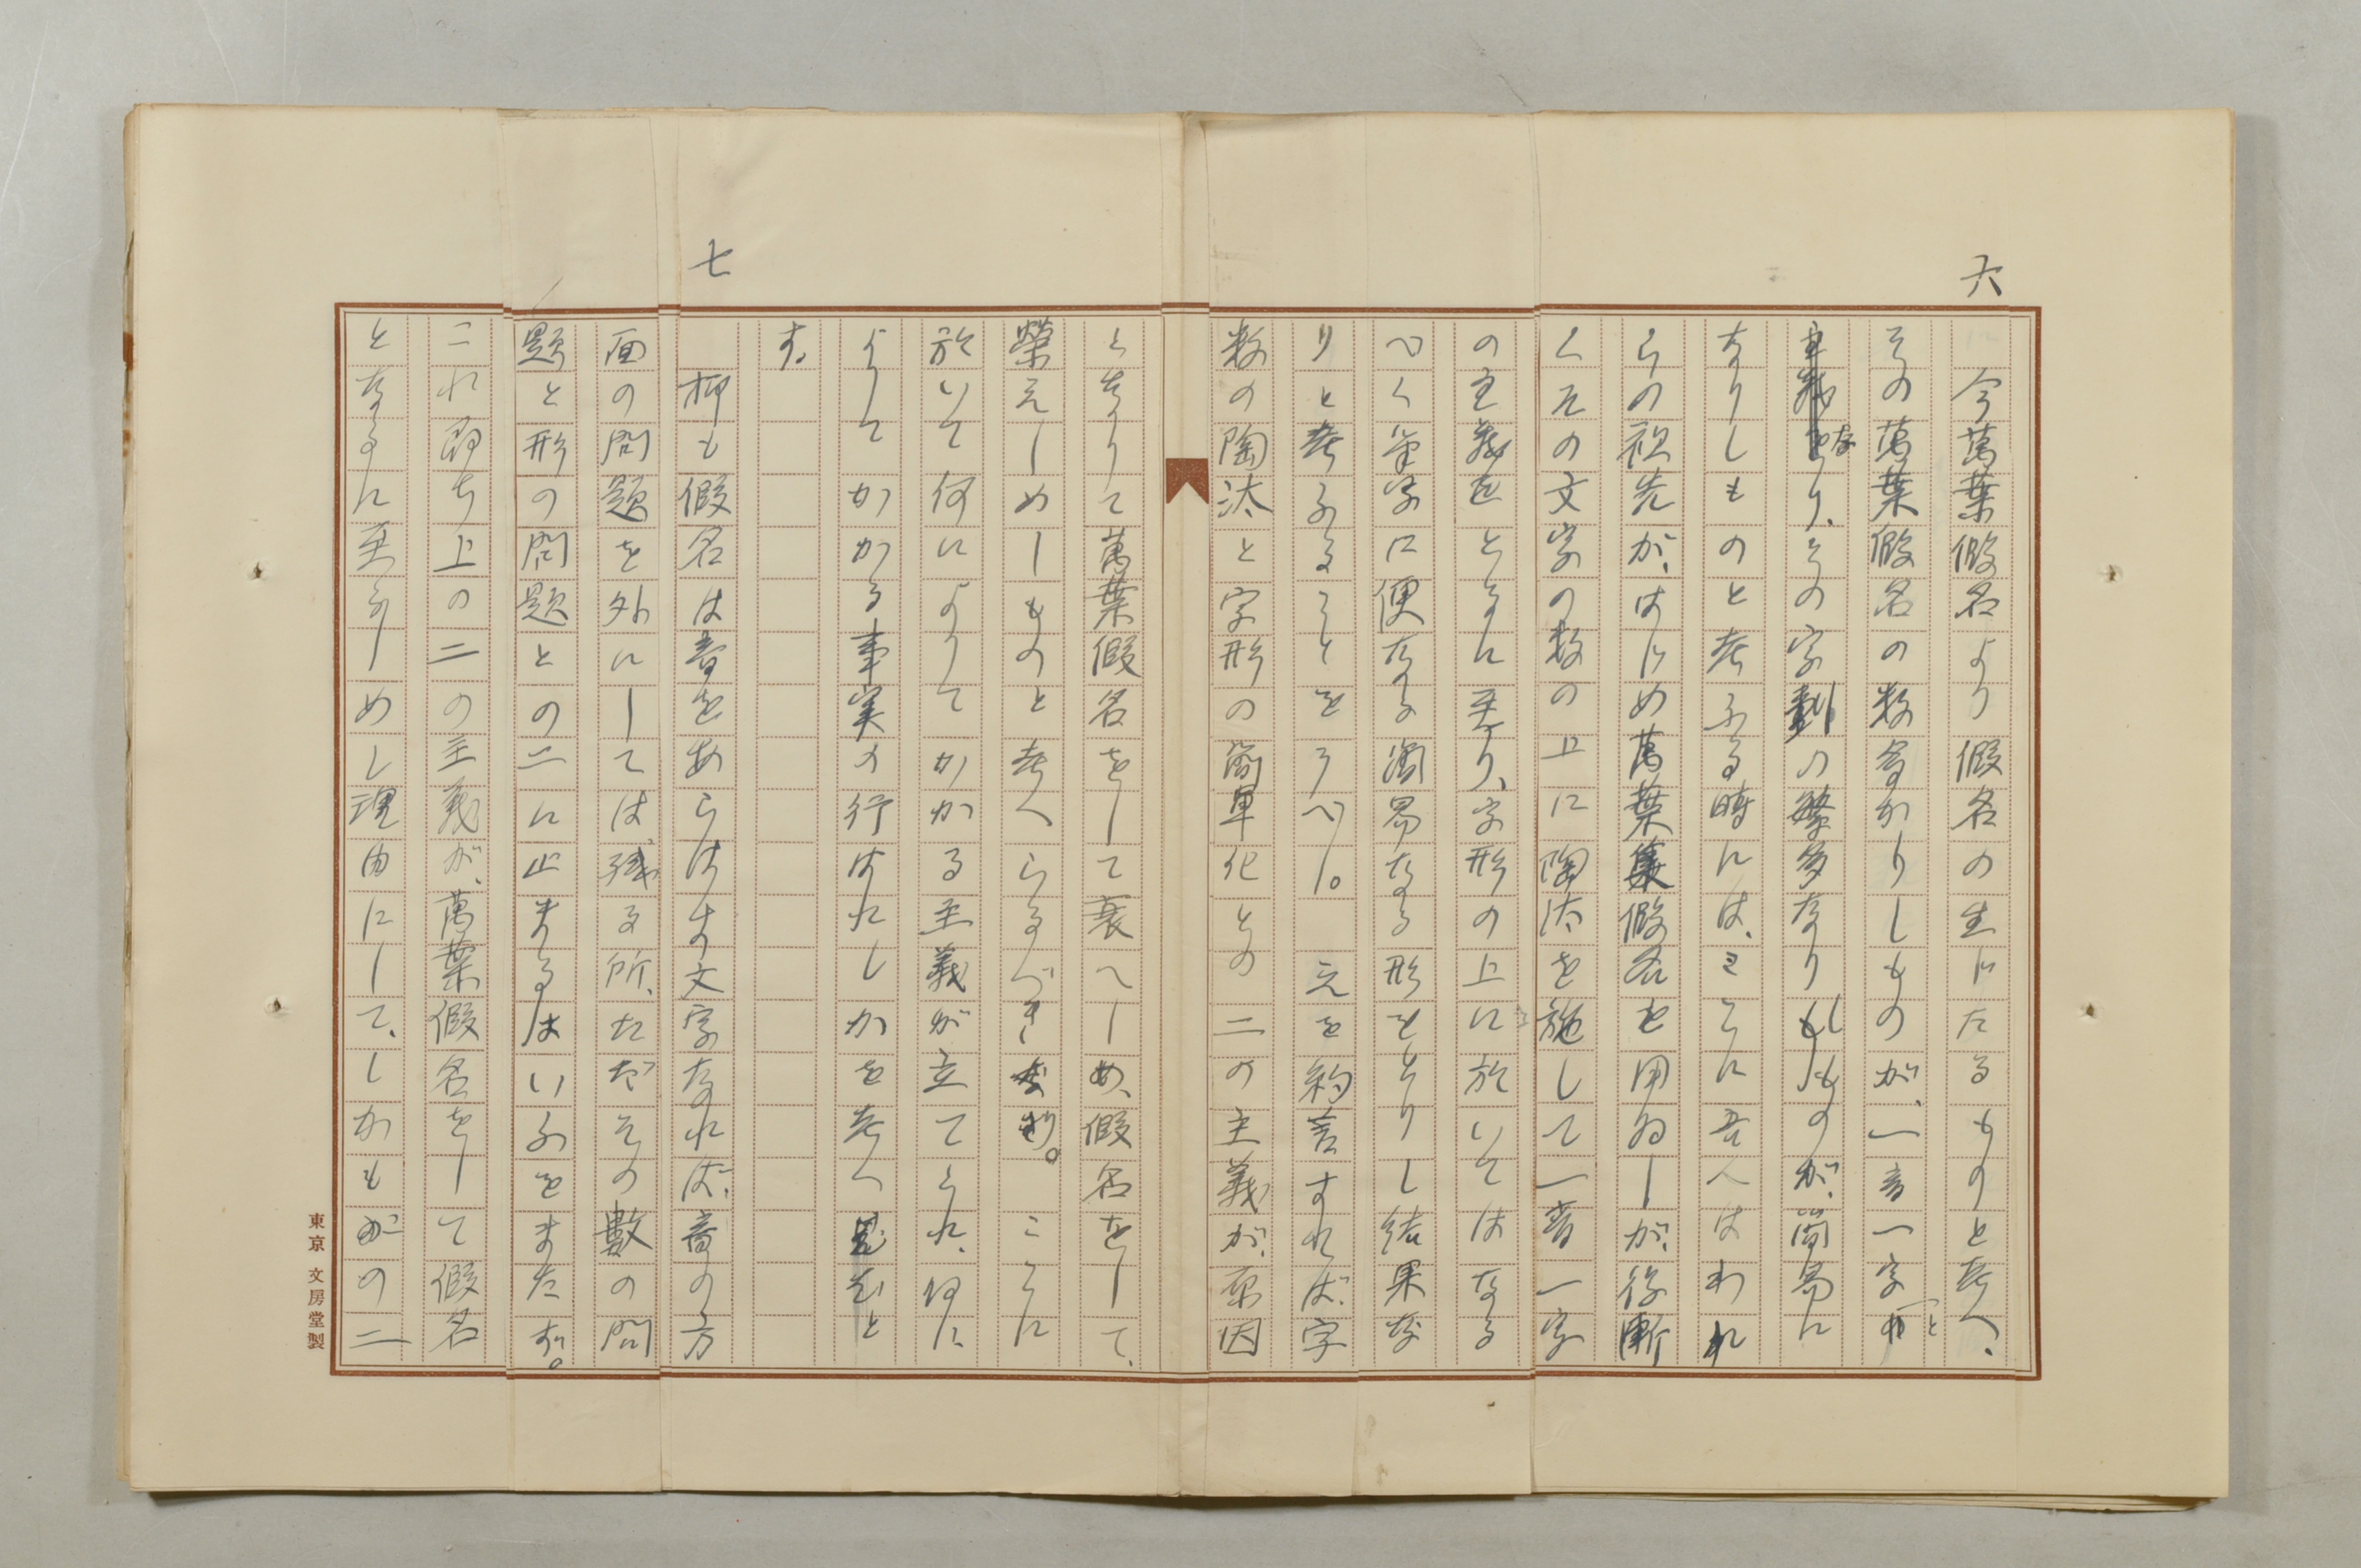 六
今萬葉假名より假名の生じたるものと考へ、
その萬葉假名の數多かりしものが、一音一字
となり、その字劃の繁多なりしものが、簡易に
なりしものと考ふる時には、ここに吾人はわれ
らの祖先が、はじめ萬葉集假名を用ゐしが、後漸
くその文字の数の上に陶汰を施して一音一字
の主義をとるに至り、字形の上に於いてはなる
べく筆写に便なる簡易なる形をとりし結果な
りと考ふることをうべし。 之を約言すれば、字
数の陶汰と字形の簡単化との二の主義が、原因
となりて萬葉假名をして衰へしめ、假名をして、
榮えしめしものと考へらるべきなり。 ここに
於いて何によりてかかる主義が立てられ、何に
よりてかかる事実の行はれしかを考へむと
す。
七
抑も假名は音をあらはす文字なれば、音の方
面の問題を外にしては、残る所、ただその數の問
題と形の問題との二に止まるはいふをまたず。
これ即ち上の二の主義が、萬葉假名をして假名
となるに至らしめし理由にして、しかもがの二
東京 文房堂製